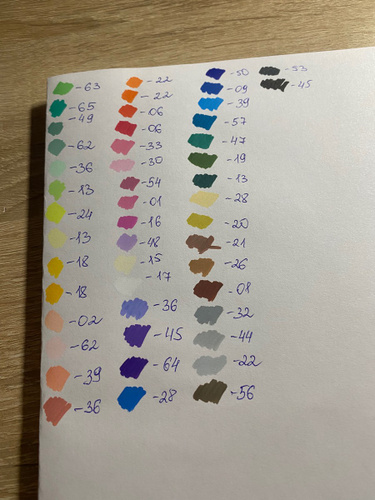 -63
-65
-49
-62
-36
-13
-24
-13
-18
-18
-02
-62
-39
-36
-22
-22
-06
-06
-33
-30
-54
-01
-16
-48
-15
-17
-36
-45
-64
-28
-50
-09
-39
-57
-47
-19
-13
-28
-20
-21
-26
-08
-32
-44
-22
-56
-53
-45